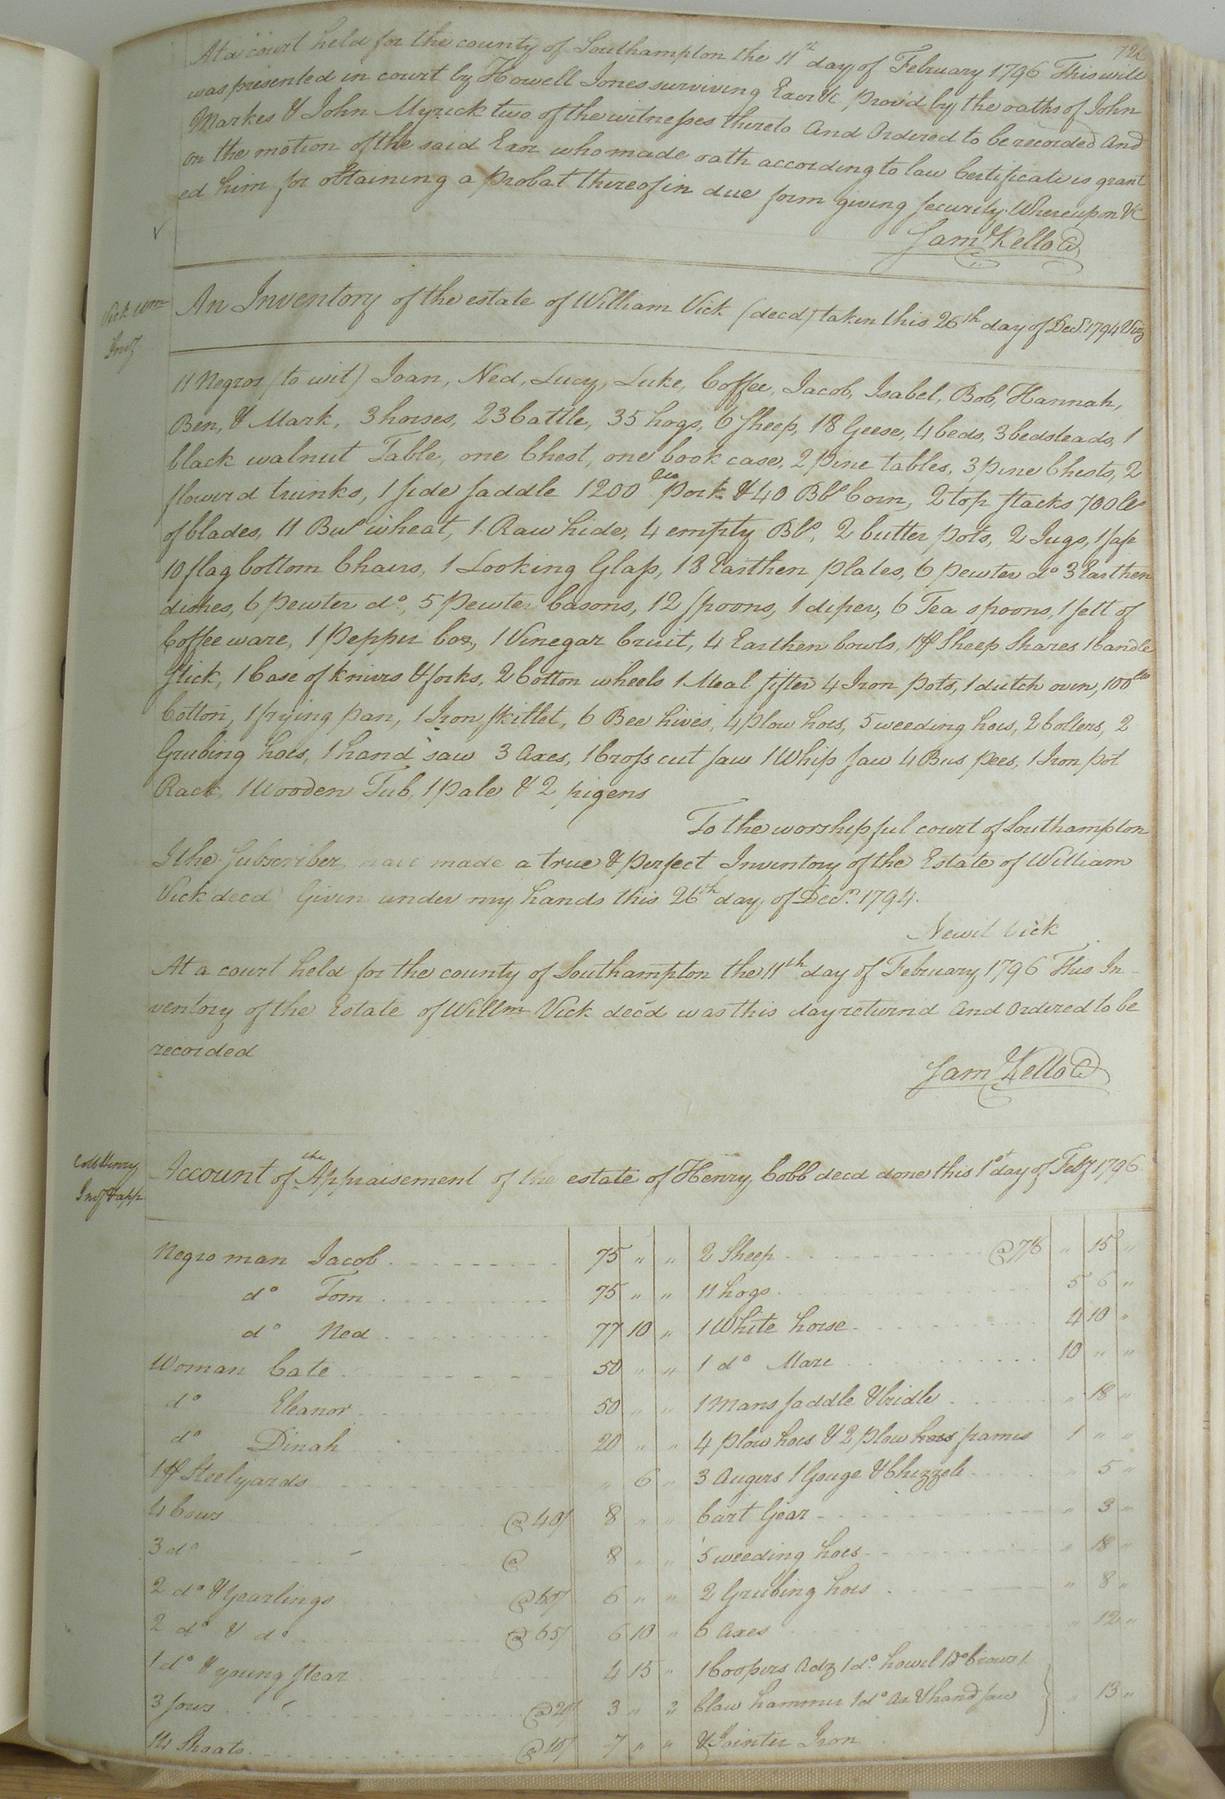 At a court held for the county of Southampton the 11th day of February 1796 This will
was presented in court by Howell Jones surviving Exor &c provd by the oaths of John
Markes & John Myrick two of the witnesses thereto And Ordered to be recorded And
on the motion of the said Exor who made oath according to law Certificate is grant
ed him for obtaining a Probat thereof in due form giving security Whereupon &c
Saml Kello C
Vick Wm
Invy
An Inventory of the estate of William Vick (decd) taken this 26th day of Decr. 1794 Viz
11 Negros (to wit) Joan, Ned, Lucy, Luke, Coffee, Jacob, Isabel, Bob, Hannah,
Ben, & Mark, 3 horses, 23 Cattle, 35 hogs, 6 Sheep, 18 Geese, 4 beds, 3 bedsteads, 1
black walnut Table, one Chest, one book case, 2 pine tables, 3 pine Chests, 2
flowerd trunks, 1 side saddle 1200 lbs Pork & 40 Bls Corn, 2 top stacks 700 lbs
of blades, 11 Bus wheat, 1 Raw hide, 4 empty Bls, 2 butter pots, 2 Jugs, 1 safe
10 flag bottom Chairs, 1 Looking Glass, 18 Earthen plates, 6 pewter do 3 Earthen
dishes, 6 pewter do, 5 pewter basons, 12 spoons, 1 diper, 6 Tea spoons, 1 sett of
Coffee ware, 1 Pepper box, 1 Vinegar Cruit, 4 Earthen bowls, 1 pr Sheep Shares 1 Candle
stick, 1 Case of knives & forks, 2 Cotton wheels 1 Meal sifter 4 Iron pots, 1 dutch oven, 100 lbs
Cotton, 1 frying pan, 1 Iron skillet, 6 Bee hives, 4 plow hoes, 5 weeding hoes, 2 Collers, 2
Grubing hoes, 1 hand saw 3 Axes, 1 Cross cut saw 1 Whip saw 4 Bus pees, 1 Iron pot
Rack, 1 Wooden Tub, 1 Pale & 2 pigens
To the worshipful court of Southampton
I the Subscriber have made a true & perfect Inventory of the Estate of William
Vick decd Given under my hands this 26th day of Decr. 1794.
Newit Vick
At a court held for the county of Southampton the 11th day of February 1796 This In-
ventory of the Estate of Willm Vick decd was this day returnd And Ordered to be
recorded
Saml Kello C
Cobb Henry
Invy & app
Account of the Appraisement of the estate of Henry Cobb decd done this 1st day of Feby 1796
Negro man Jacob 75 " " 2 Sheep @ 7/6 " 15 "
do Tom 75 " " 11 hogs 5 6 "
do Ned 77 10 " 1 White horse 4 10 "
Woman Cate 50 " " 1 do Mare 10 " "
do Eleanor 50 " " 1 Mans saddle & bridle " 18 "
do Dinah 20 " " 4 plow hoes & 2 plow hoes frames 1 " "
1 pr Steelyards " 6 " 3 Augers 1 Gouge & Chizzele " 5 "
4 Cows @ 40/ 8 " " Cart Gear " 3 "
3 do @ 8 " " 5 weeding hoes " 18 "
2 do & Yearlings @ 60/ 6 " " 2 Grubing hoes " 8 "
2 do & do @ 65/ 6 10 " 6 Axes " 12 "
1 do & young stear 4 15 " 1 Coopers Adz 1 do howel 1 do
3 sows @ 3 " " Claw hammer 1 do Ax & hand saw " 13 "
14 Shoats @ 10/ 7 " " & Jointer Iron